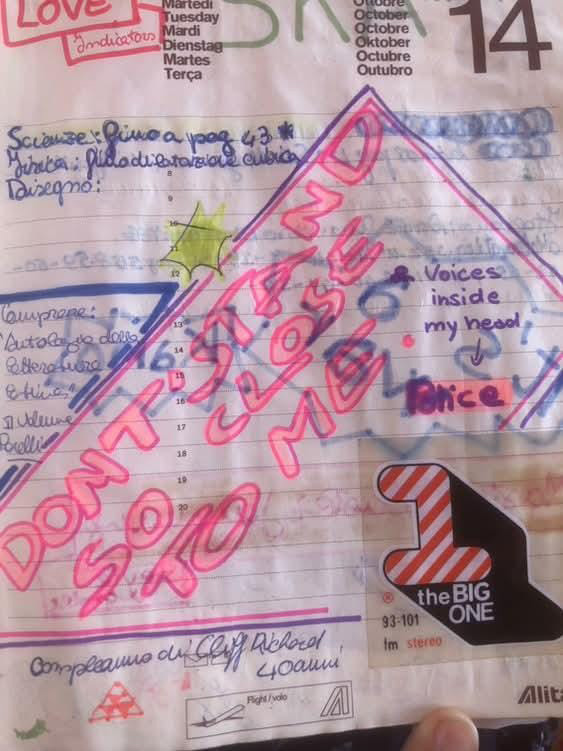 LOVE
Indicators
SKA
Martedì
Tuesday
Mardi
Dienstag
Martes
Terça
Ottobre
October
Octobre
Oktober
Octubre
Outubro
14
Scienze: fino a pag 43 *
Disegno:
8
9
10
11
12
13
14
15
16
17
18
19
20
Comprare:
Antologia della
Letteratura
Latina"
II Volume
DONT STAND
SO CLOSE
TO ME
Voices
inside
my head
Police
1
® the BIG
ONE
93-101
fm stereo
Compleanno di Cliff Richard
40 anni
Flight/volo
Alita